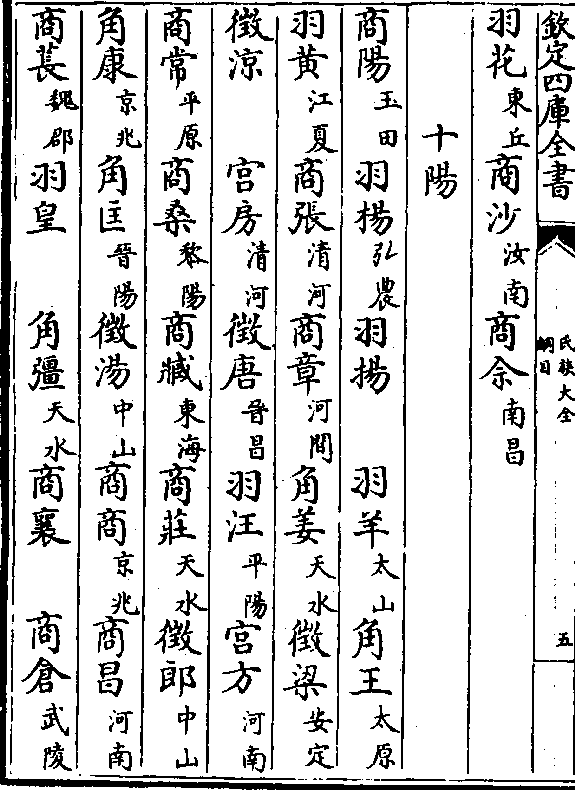 欽定四庫全書
氏族大全
綱目
五
羽花東丘商沙汝南商佘南昌
十陽
商陽玉田羽楊弘農羽揚羽羊太山角王太原
羽黄江夏商張清河商章河間角姜天水徵梁安定
徵涼宫房清河徵唐晉昌羽汪平陽宫方河南
商常平原商桑黎陽商臧東海商莊天水徵郎中山
角康京兆角匡晉陽徵湯中山商商京兆商昌河南
商萇魏郡羽皇角彊天水商襄商倉武陵